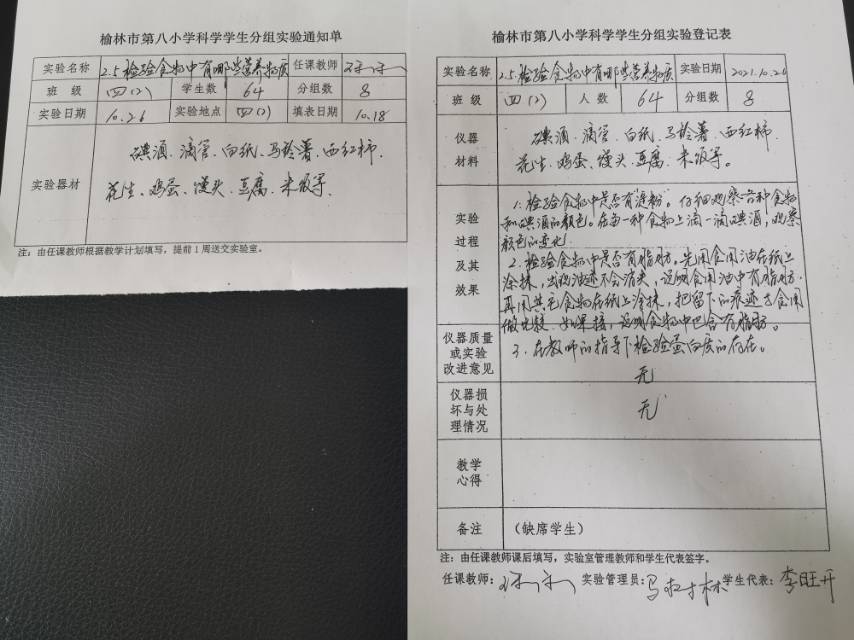 榆林市第八小学科学学生分组实验通知单
实验名称 2.5检验食物中有哪些营养物质 任课教师
班 级 四(2) 学生数 64 分组数 8
实验日期 10.26 实验地点 四(2) 填表日期 10.18
实验器材
碘酒、滴管、白纸、马铃薯、西红柿、
花生、鸡蛋、馒头、豆腐、米饭等、
注：由任课教师根据教学计划填写，提前1周送交实验室。
榆林市第八小学科学学生分组实验登记表
实验名称 2.5检验食物中有哪些营养物质 实验日期 2021.10.26
班 级 四(2) 人 数 64 分组数 8
仪器
材料
碘酒、滴管、白纸、马铃薯、西红柿、
花生、鸡蛋、馒头、豆腐、米饭等。
实验
过程
及其
效果
1.检验食物中是否有淀粉。仔细观察各种食物
和碘酒的颜色。在每一种食物上滴一滴碘酒，观察
颜色的变化.
2.检验食物中是否有脂肪。先用食用油在纸上
涂抹，出现油迹不会消失，说明食用油中有脂肪.
再用其它食物在纸上涂抹，把留下的痕迹与食用
做比较.如果接，说明食物中包含有脂肪。
3.在教师的指导下检验蛋白质的存在。
仪器质量
或实验
改进意见
无
仪器损
坏与处
理情况
无
教学
心得
备注 （缺席学生）
注：由任课教师课后填写，实验室管理教师和学生代表签字。
任课教师： 实验管理员：马树林 学生代表：李旺开